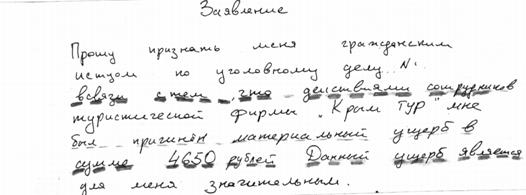 Заявление
Прошу признать меня гражданским
истцом по уголовному делу.. №.
всвязи с тем, что действиями сотрудников
туристической фирмы „Крым Тур" мне
был причинён материальный ущерб в
сумме 4650 рублей Данный ущерб является
для меня значительным.